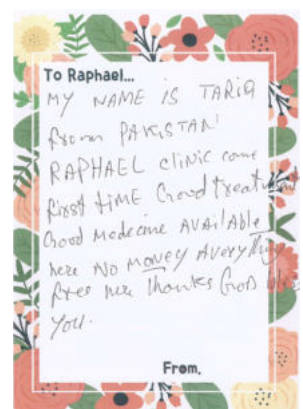 To Raphael...
MY NAME IS TARIQ
from PAKISTAN
RAPHAEL cliNic come
first tiME Good treatment
Good Medecine AVAilable
here No money Averything
free here thanks God bless
you.
From.